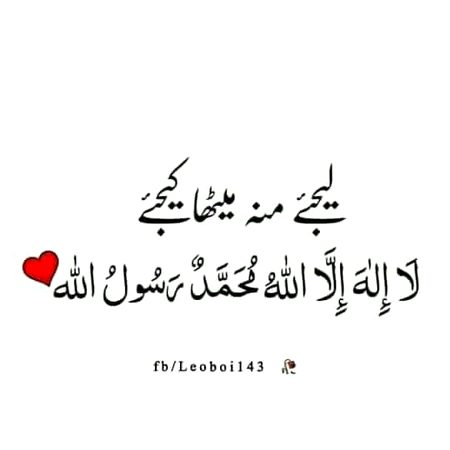 لیجئے منہ میٹھا کیجئے
لَا إِلٰهَ إِلَّا اللهُ مُحَمَّدٌ رَسُولُ الله
fb/Leoboi143